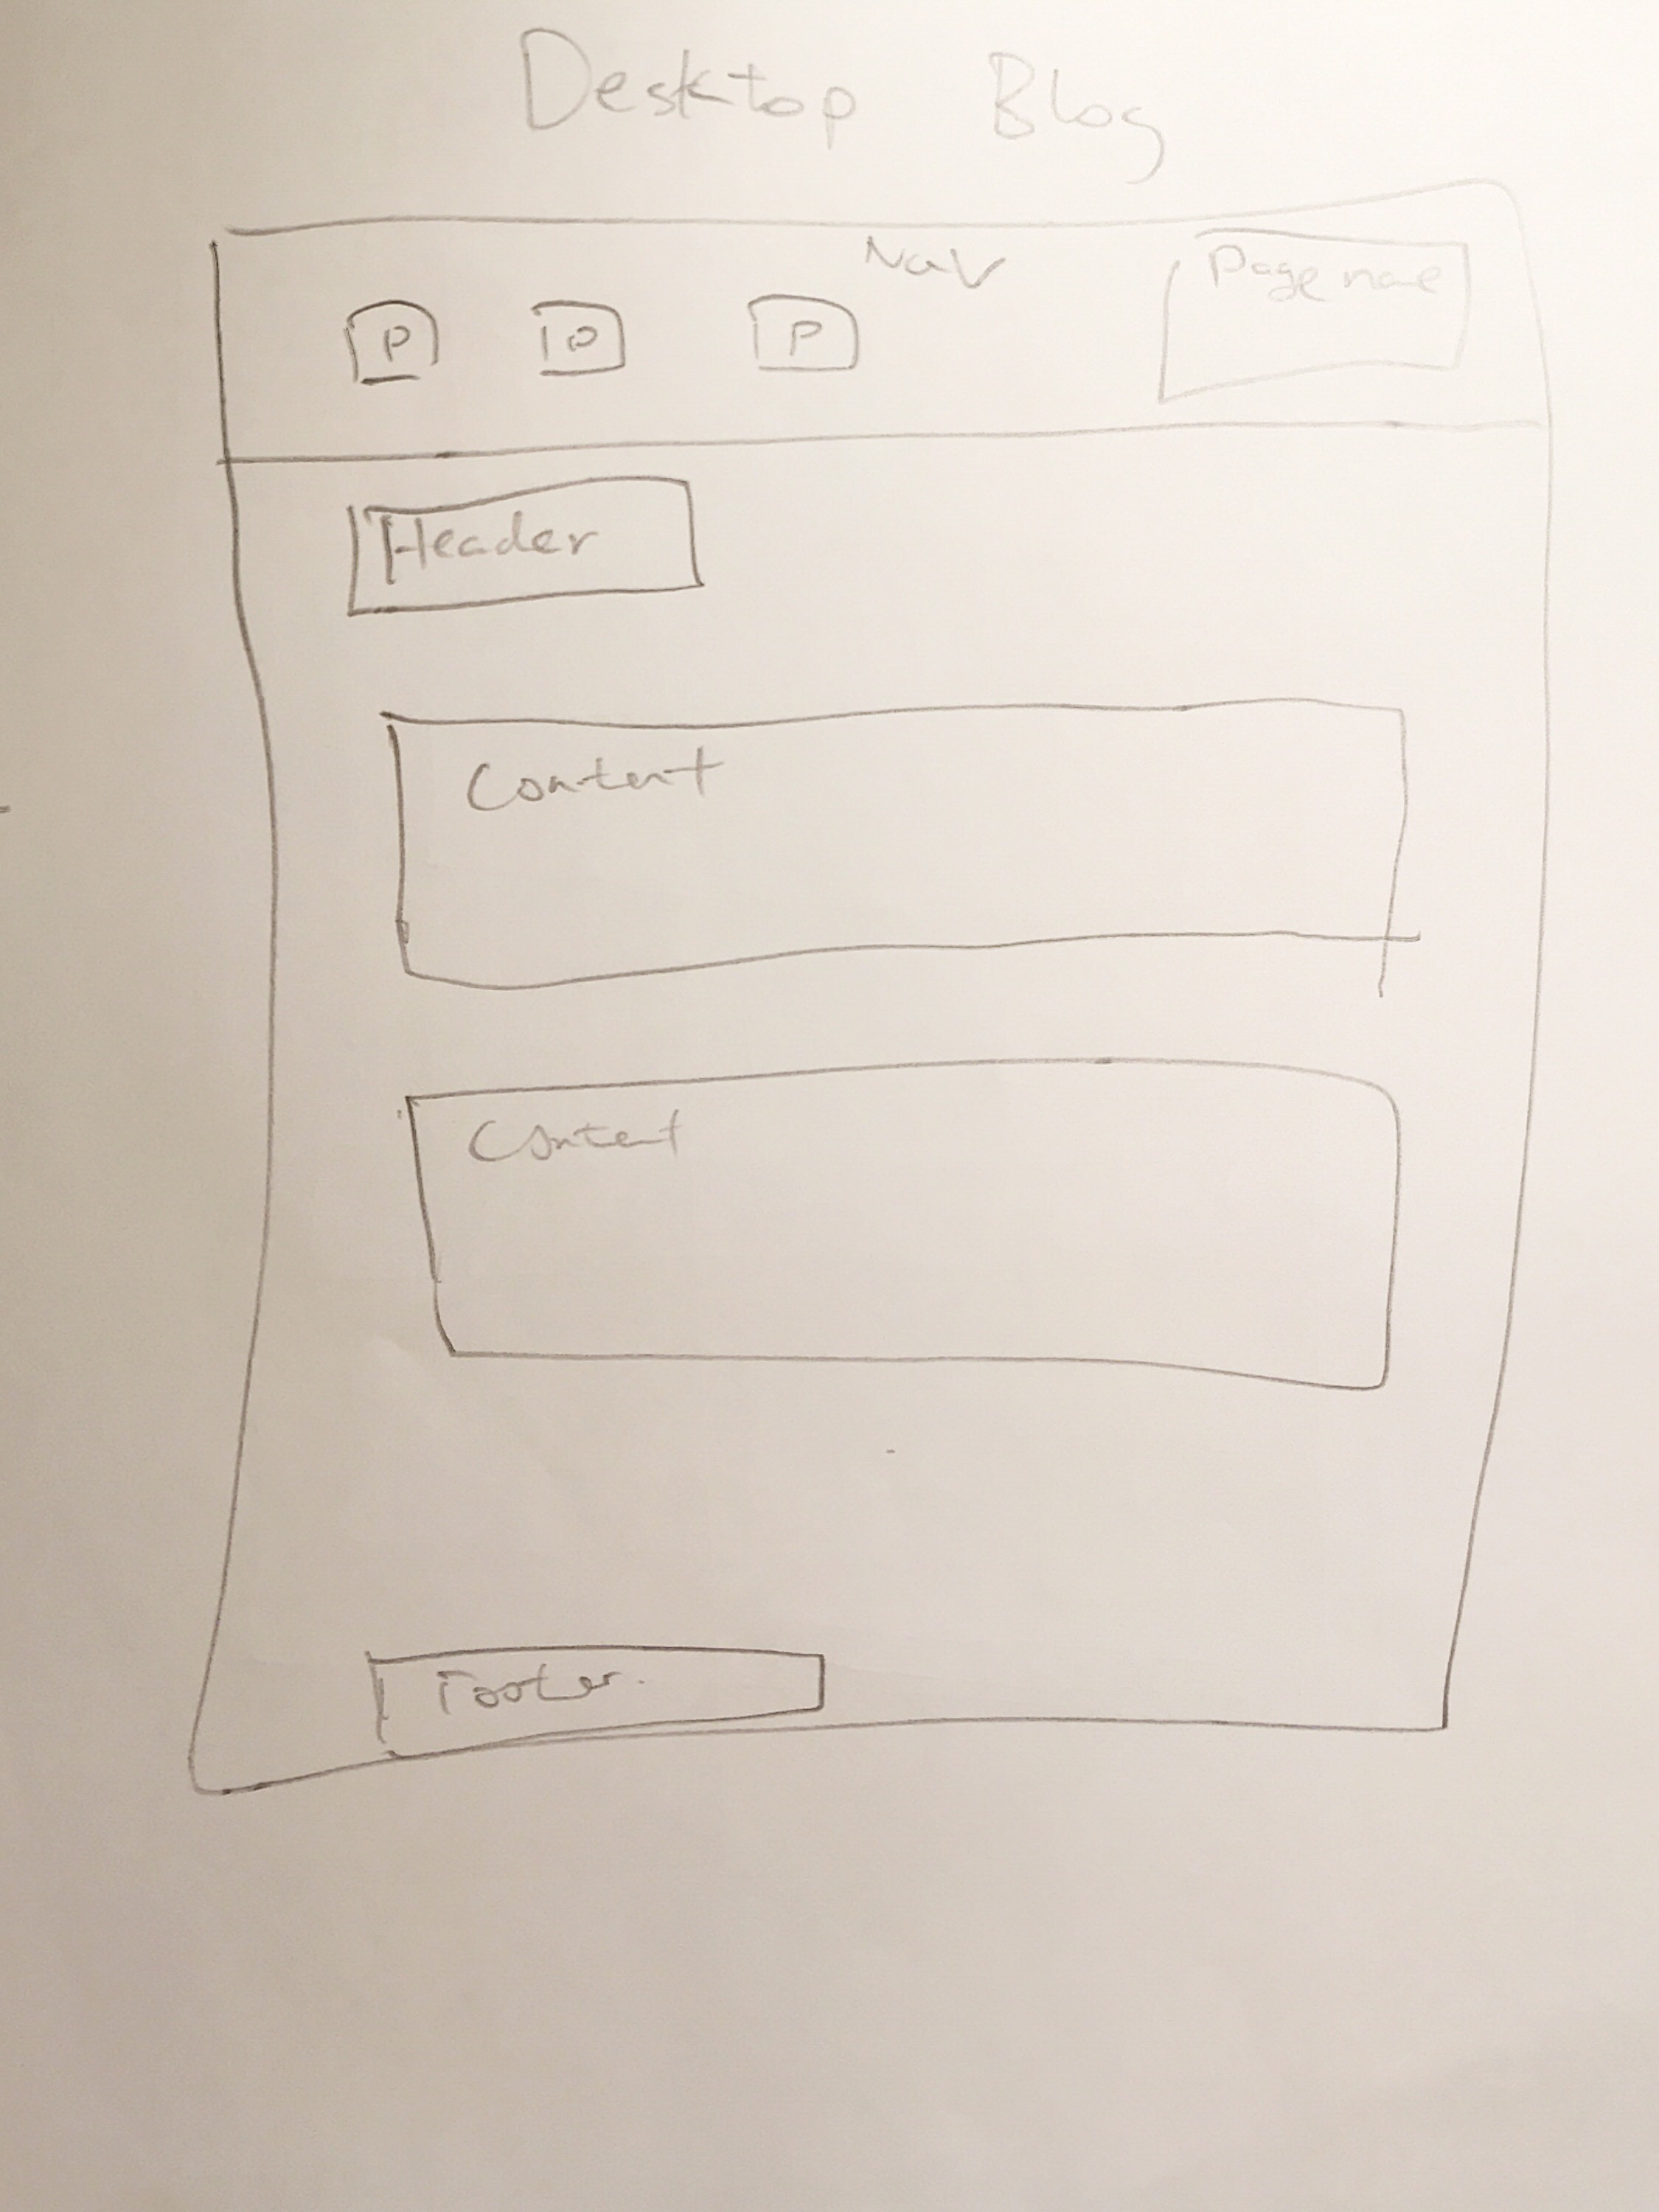 Desktop Blog
Nav
P P P Page name
Header
Content
Content
Footer.